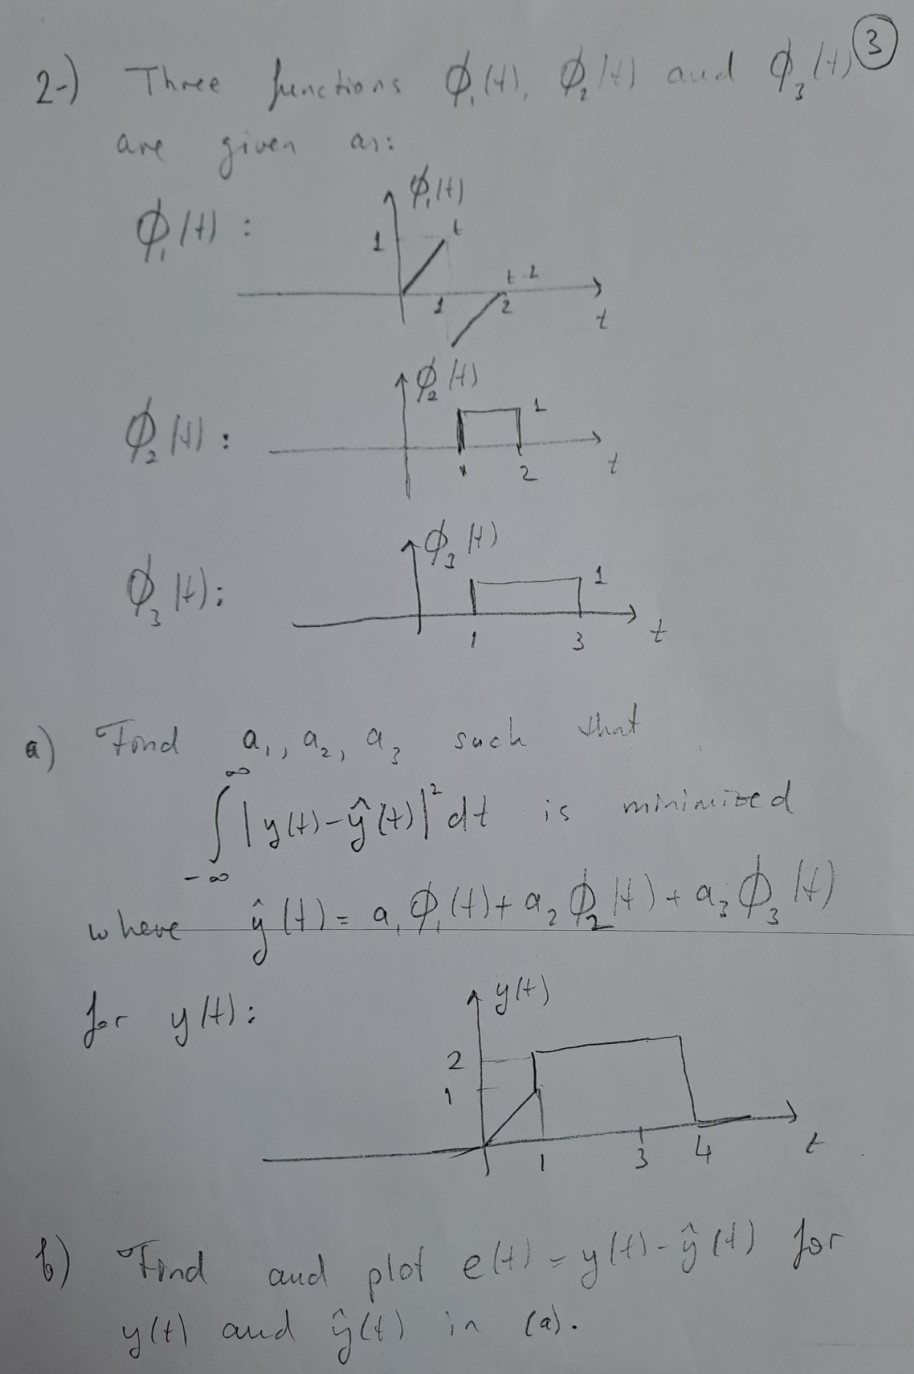 3
2-) Three functions ϕ₁(t), ϕ₂(t) and ϕ₃(t)
are given as:
ϕ₁(t) :
ϕ₁(t)
1
t
1
t-2
2
t
ϕ₂(t) :
ϕ₂(t)
1
1
2
t
ϕ₃(t) :
ϕ₃(t)
1
1
3
t
a) Find a₁, a₂, a₃ such that
∫_{-∞}^{∞} |y(t)-ŷ(t)|² dt is minimized
where ŷ(t) = a₁ϕ₁(t) + a₂ϕ₂(t) + a₃ϕ₃(t)
for y(t) :
y(t)
2
1
1
3
4
t
b) Find and plot e(t) = y(t) - ŷ(t) for
y(t) and ŷ(t) in (a).